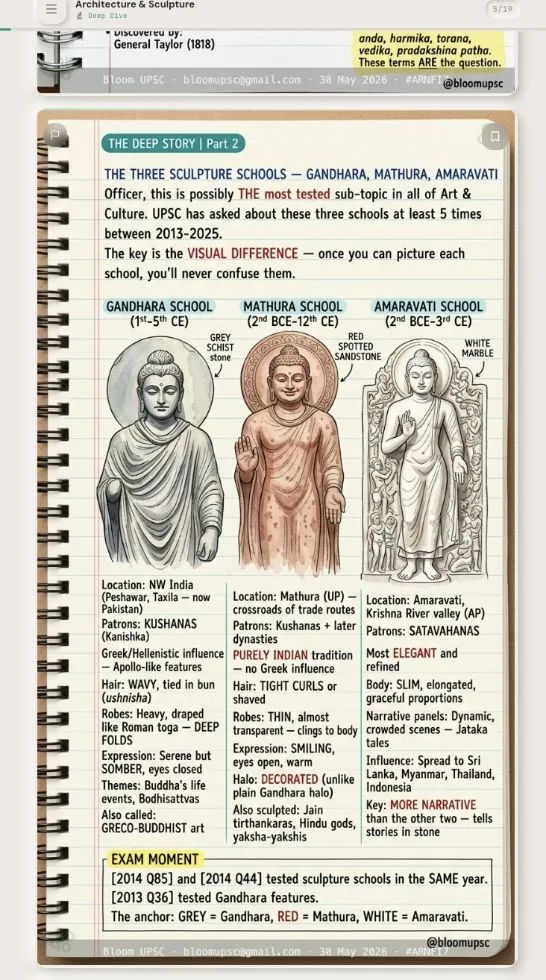 Architecture & Sculpture
Deep Dive
5/19
Discovered by:
General Taylor (1818)
anda, harmika, torana,
vedika, pradakshina patha.
These terms ARE the question.
Bloom UPSC · bloomupsc@gmail.com · 30 May 2026 ·
@bloomupsc
THE DEEP STORY | Part 2
THE THREE SCULPTURE SCHOOLS — GANDHARA, MATHURA, AMARAVATI
Officer, this is possibly THE most tested sub-topic in all of Art &
Culture. UPSC has asked about these three schools at least 5 times
between 2013-2025.
The key is the VISUAL DIFFERENCE — once you can picture each
school, you'll never confuse them.
GANDHARA SCHOOL
(1st-5th CE)
GREY
SCHIST
stone
Location: NW India
(Peshawar, Taxila — now
Pakistan)
Patrons: KUSHANAS
(Kanishka)
Greek/Hellenistic influence
— Apollo-like features
Hair: WAVY, tied in bun
(ushnisha)
Robes: Heavy, draped
like Roman toga — DEEP
FOLDS
Expression: Serene but
SOMBER, eyes closed
Themes: Buddha's life
events, Bodhisattvas
Also called:
GRECO-BUDDHIST art
MATHURA SCHOOL
(2nd BCE-12th CE)
RED
SPOTTED
SANDSTONE
Location: Mathura (UP) —
crossroads of trade routes
Patrons: Kushanas + later
dynasties
PURELY INDIAN tradition
— no Greek influence
Hair: TIGHT CURLS or
shaved
Robes: THIN, almost
transparent — clings to body
Expression: SMILING,
eyes open, warm
Halo: DECORATED (unlike
plain Gandhara halo)
Also sculpted: Jain
tirthankaras, Hindu gods,
yaksha-yakshis
AMARAVATI SCHOOL
(2nd BCE-3rd CE)
WHITE
MARBLE
Location: Amaravati,
Krishna River valley (AP)
Patrons: SATAVAHANAS
Most ELEGANT and
refined
Body: SLIM, elongated,
graceful proportions
Narrative panels: Dynamic,
crowded scenes — Jataka
tales
Influence: Spread to Sri
Lanka, Myanmar, Thailand,
Indonesia
Key: MORE NARRATIVE
than the other two — tells
stories in stone
EXAM MOMENT
[2014 Q85] and [2014 Q44] tested sculpture schools in the SAME year.
[2013 Q36] tested Gandhara features.
The anchor: GREY = Gandhara, RED = Mathura, WHITE = Amaravati.
@bloomupsc
Bloom UPSC · bloomupsc@gmail.com · 30 May 2026 ·